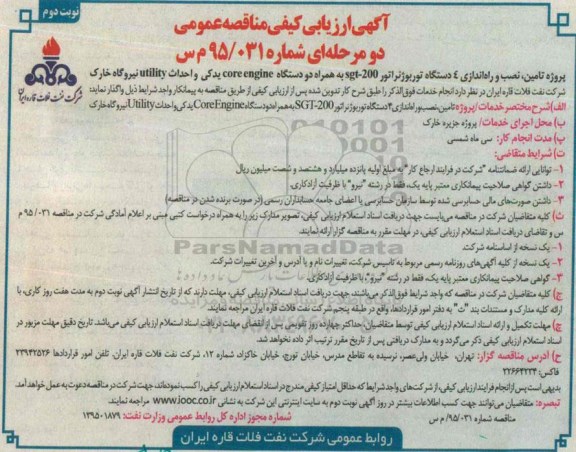 نوبت دوم
آگهی ارزیابی کیفی مناقصه عمومی
دو مرحله‌ای شماره ۹۵/۰۳۱ م س
شرکت نفت فلات قاره ایران
پروژه تامین، نصب و راه‌اندازی ٤ دستگاه توربوژنراتور sgt-200 به همراه دو دستگاه core engine یدکی و احداث utility نیروگاه خارک
شرکت نفت فلات قاره ایران در نظر دارد انجام خدمات فوق‌الذکر را طبق شرح کار تدوین شده پس از ارزیابی کیفی از طریق مناقصه به پیمانکار واجد شرایط ذیل واگذار نماید:
الف) شرح مختصر خدمات/ پروژه: تامین، نصب و راه‌اندازی ۴ دستگاه توربوژنراتور SGT-200 به همراه دو دستگاه Core Engine یدکی و احداث Utility نیروگاه خارک
ب) محل اجرای خدمات/ پروژه جزیره خارک
پ) مدت انجام کار: سی ماه شمسی
ت) شرایط متقاضی:
۱- توانایی ارائه ضمانتنامه "شرکت در فرایند ارجاع کار" به مبلغ اولیه پانزده میلیارد و هشتصد و شصت میلیون ریال
۲- داشتن گواهی صلاحیت پیمانکاری معتبر پایه یک، فقط در رشته "نیرو" با ظرفیت آزادکاری.
۳- داشتن صورت‌های مالی حسابرسی شده توسط سازمان حسابرسی یا اعضای جامعه حسابداران رسمی (در صورت برنده شدن در مناقصه)
ث) کلیه متقاضیان شرکت در مناقصه می‌بایست جهت دریافت اسناد استعلام ارزیابی کیفی، تصویر مدارک زیر را به همراه درخواست کتبی مبنی بر اعلام آمادگی شرکت در مناقصه ۹۵/۰۳۱ م
س و تقاضای دریافت اسناد استعلام ارزیابی کیفی، در مهلت مقرر به مناقصه گزار ارائه نمایند.
۱- یک نسخه از اساسنامه شرکت.
۲- یک نسخه از کلیه آگهی‌های روزنامه رسمی مربوط به تاسیس شرکت، تغییرات نام و یا آدرس و آخرین تغییرات شرکت.
۳- گواهی صلاحیت پیمانکاری معتبر پایه یک، فقط در رشته "نیرو"، با ظرفیت آزادکاری.
ج) کلیه متقاضیان شرکت در مناقصه که واجد شرایط فوق الذکر می‌باشند، جهت دریافت اسناد استعلام ارزیابی کیفی، مهلت دارند که از تاریخ انتشار آگهی نوبت دوم به مدت هفت روز کاری، با
ارائه کلیه مدارک و مستندات بند "ث" به دفتر امور قراردادها، واقع در طبقه پنجم شرکت نفت فلات قاره ایران مراجعه نمایند.
چ) مهلت تکمیل و ارائه اسناد استعلام ارزیابی کیفی توسط متقاضیان، حداکثر چهارده روز تقویمی پس از انقضای مهلت دریافت اسناد استعلام ارزیابی کیفی می‌باشد. تاریخ دقیق مهلت مزبور در
اسناد استعلام ارزیابی کیفی ذکر می‌گردد و به مدارک دریافتی پس از تاریخ مقرر ترتیب اثر داده نخواهد شد.
ح) آدرس مناقصه گزار: تهران، خیابان ولی‌عصر، نرسیده به تقاطع مدرس، خیابان تورج، خیابان خاکزاد شماره ۱۲، شرکت نفت فلات قاره ایران. تلفن امور قراردادها ۲۳۹۴۲۵۲۶
فاکس: ۲۲۶۶۴۲۲۴
بدیهی است پس از انجام فرایند ارزیابی کیفی، از شرکت های واجد شرایط که حداقل امتیاز کیفی مندرج در اسناد استعلام ارزیابی کیفی را کسب نموده‌اند، جهت شرکت در مناقصه دعوت به عمل خواهد آمد.
تبصره: متقاضیان می‌توانند جهت کسب اطلاعات بیشتر در روز آگهی نوبت دوم به سایت اینترنتی این شرکت به نشانی www.iooc.co.ir مراجعه نمایند.
مناقصه شماره ۹۵/۰۳۱ م س
شماره مجوز اداره کل روابط عمومی وزارت نفت: ۱۳۹۵۰۱۸۷۹
روابط عمومی شرکت نفت فلات قاره ایران
ParsNamadData